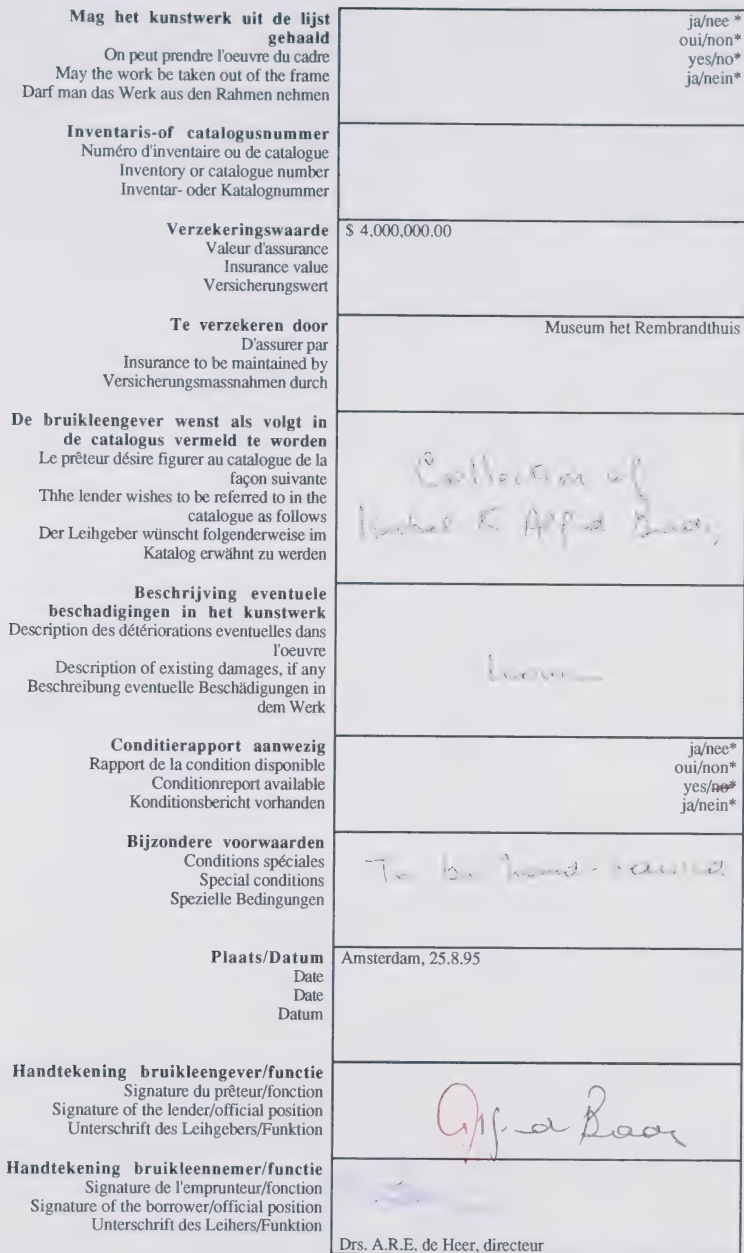 Mag het kunstwerk uit de lijst
gehaald
On peut prendre l'oeuvre du cadre
May the work be taken out of the frame
Darf man das Werk aus den Rahmen nehmen
ja/nee *
oui/non*
yes/no*
ja/nein*
Inventaris-of catalogusnummer
Numéro d'inventaire ou de catalogue
Inventory or catalogue number
Inventar- oder Katalognummer
Verzekeringswaarde
Valeur d'assurance
Insurance value
Versicherungswert
$ 4,000,000.00
Te verzekeren door
D'assurer par
Insurance to be maintained by
Versicherungsmassnahmen durch
Museum het Rembrandthuis
De bruikleengever wenst als volgt in
de catalogus vermeld te worden
Le prêteur désire figurer au catalogue de la
façon suivante
Thhe lender wishes to be referred to in the
catalogue as follows
Der Leihgeber wünscht folgenderweise im
Katalog erwähnt zu werden
Collection of
Alfred Bader
Beschrijving eventuele
beschadigingen in het kunstwerk
Description des détériorations eventuelles dans
l'oeuvre
Description of existing damages, if any
Beschreibung eventuelle Beschädigungen in
dem Werk
Conditierapport aanwezig
Rapport de la condition disponible
Conditionreport available
Konditionsbericht vorhanden
ja/nee*
oui/non*
yes/no*
ja/nein*
Bijzondere voorwaarden
Conditions spéciales
Special conditions
Spezielle Bedingungen
To be hand-carried
Plaats/Datum
Date
Date
Datum
Amsterdam, 25.8.95
Handtekening bruikleengever/functie
Signature du prêteur/fonction
Signature of the lender/official position
Unterschrift des Leihgebers/Funktion
Alfred Bader
Handtekening bruikleennemer/functie
Signature de l'emprunteur/fonction
Signature of the borrower/official position
Unterschrift des Leihers/Funktion
Drs. A.R.E. de Heer, directeur